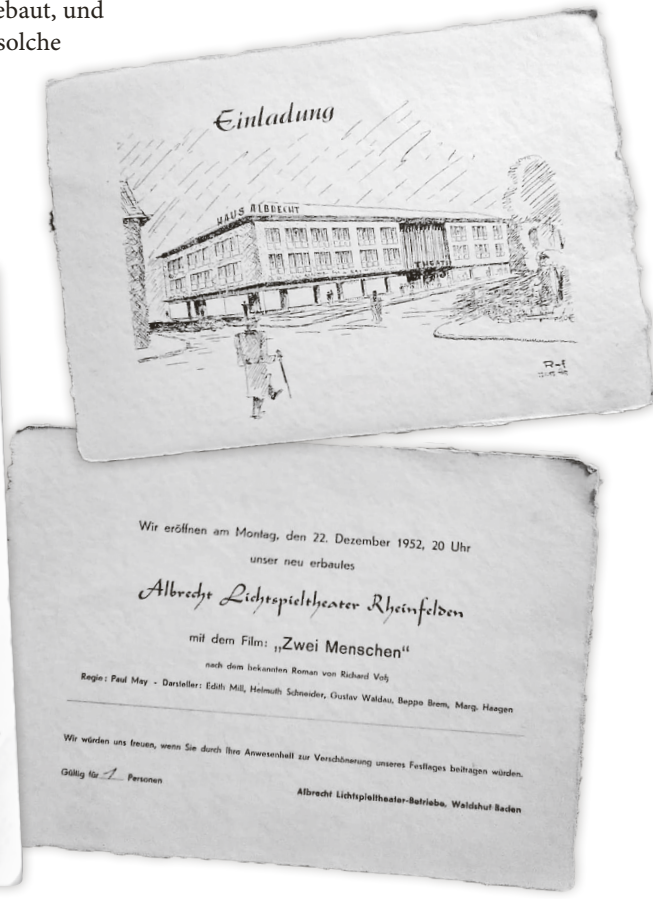 ebaut, und
solche
Einladung
HAUS ALBRECHT
THEATER
Wir eröffnen am Montag, den 22. Dezember 1952, 20 Uhr
unser neu erbautes
Albrecht Lichtspieltheater Rheinfelden
mit dem Film: „Zwei Menschen“
nach dem bekannten Roman von Richard Voß
Regie: Paul May - Darsteller: Edith Mill, Helmuth Schneider, Gustav Waldau, Beppo Brem, Marg. Haagen
Wir würden uns freuen, wenn Sie durch Ihre Anwesenheit zur Verschönerung unseres Festtages beitragen würden.
Gültig für 1 Personen
Albrecht Lichtspieltheater-Betriebe, Waldshut Baden